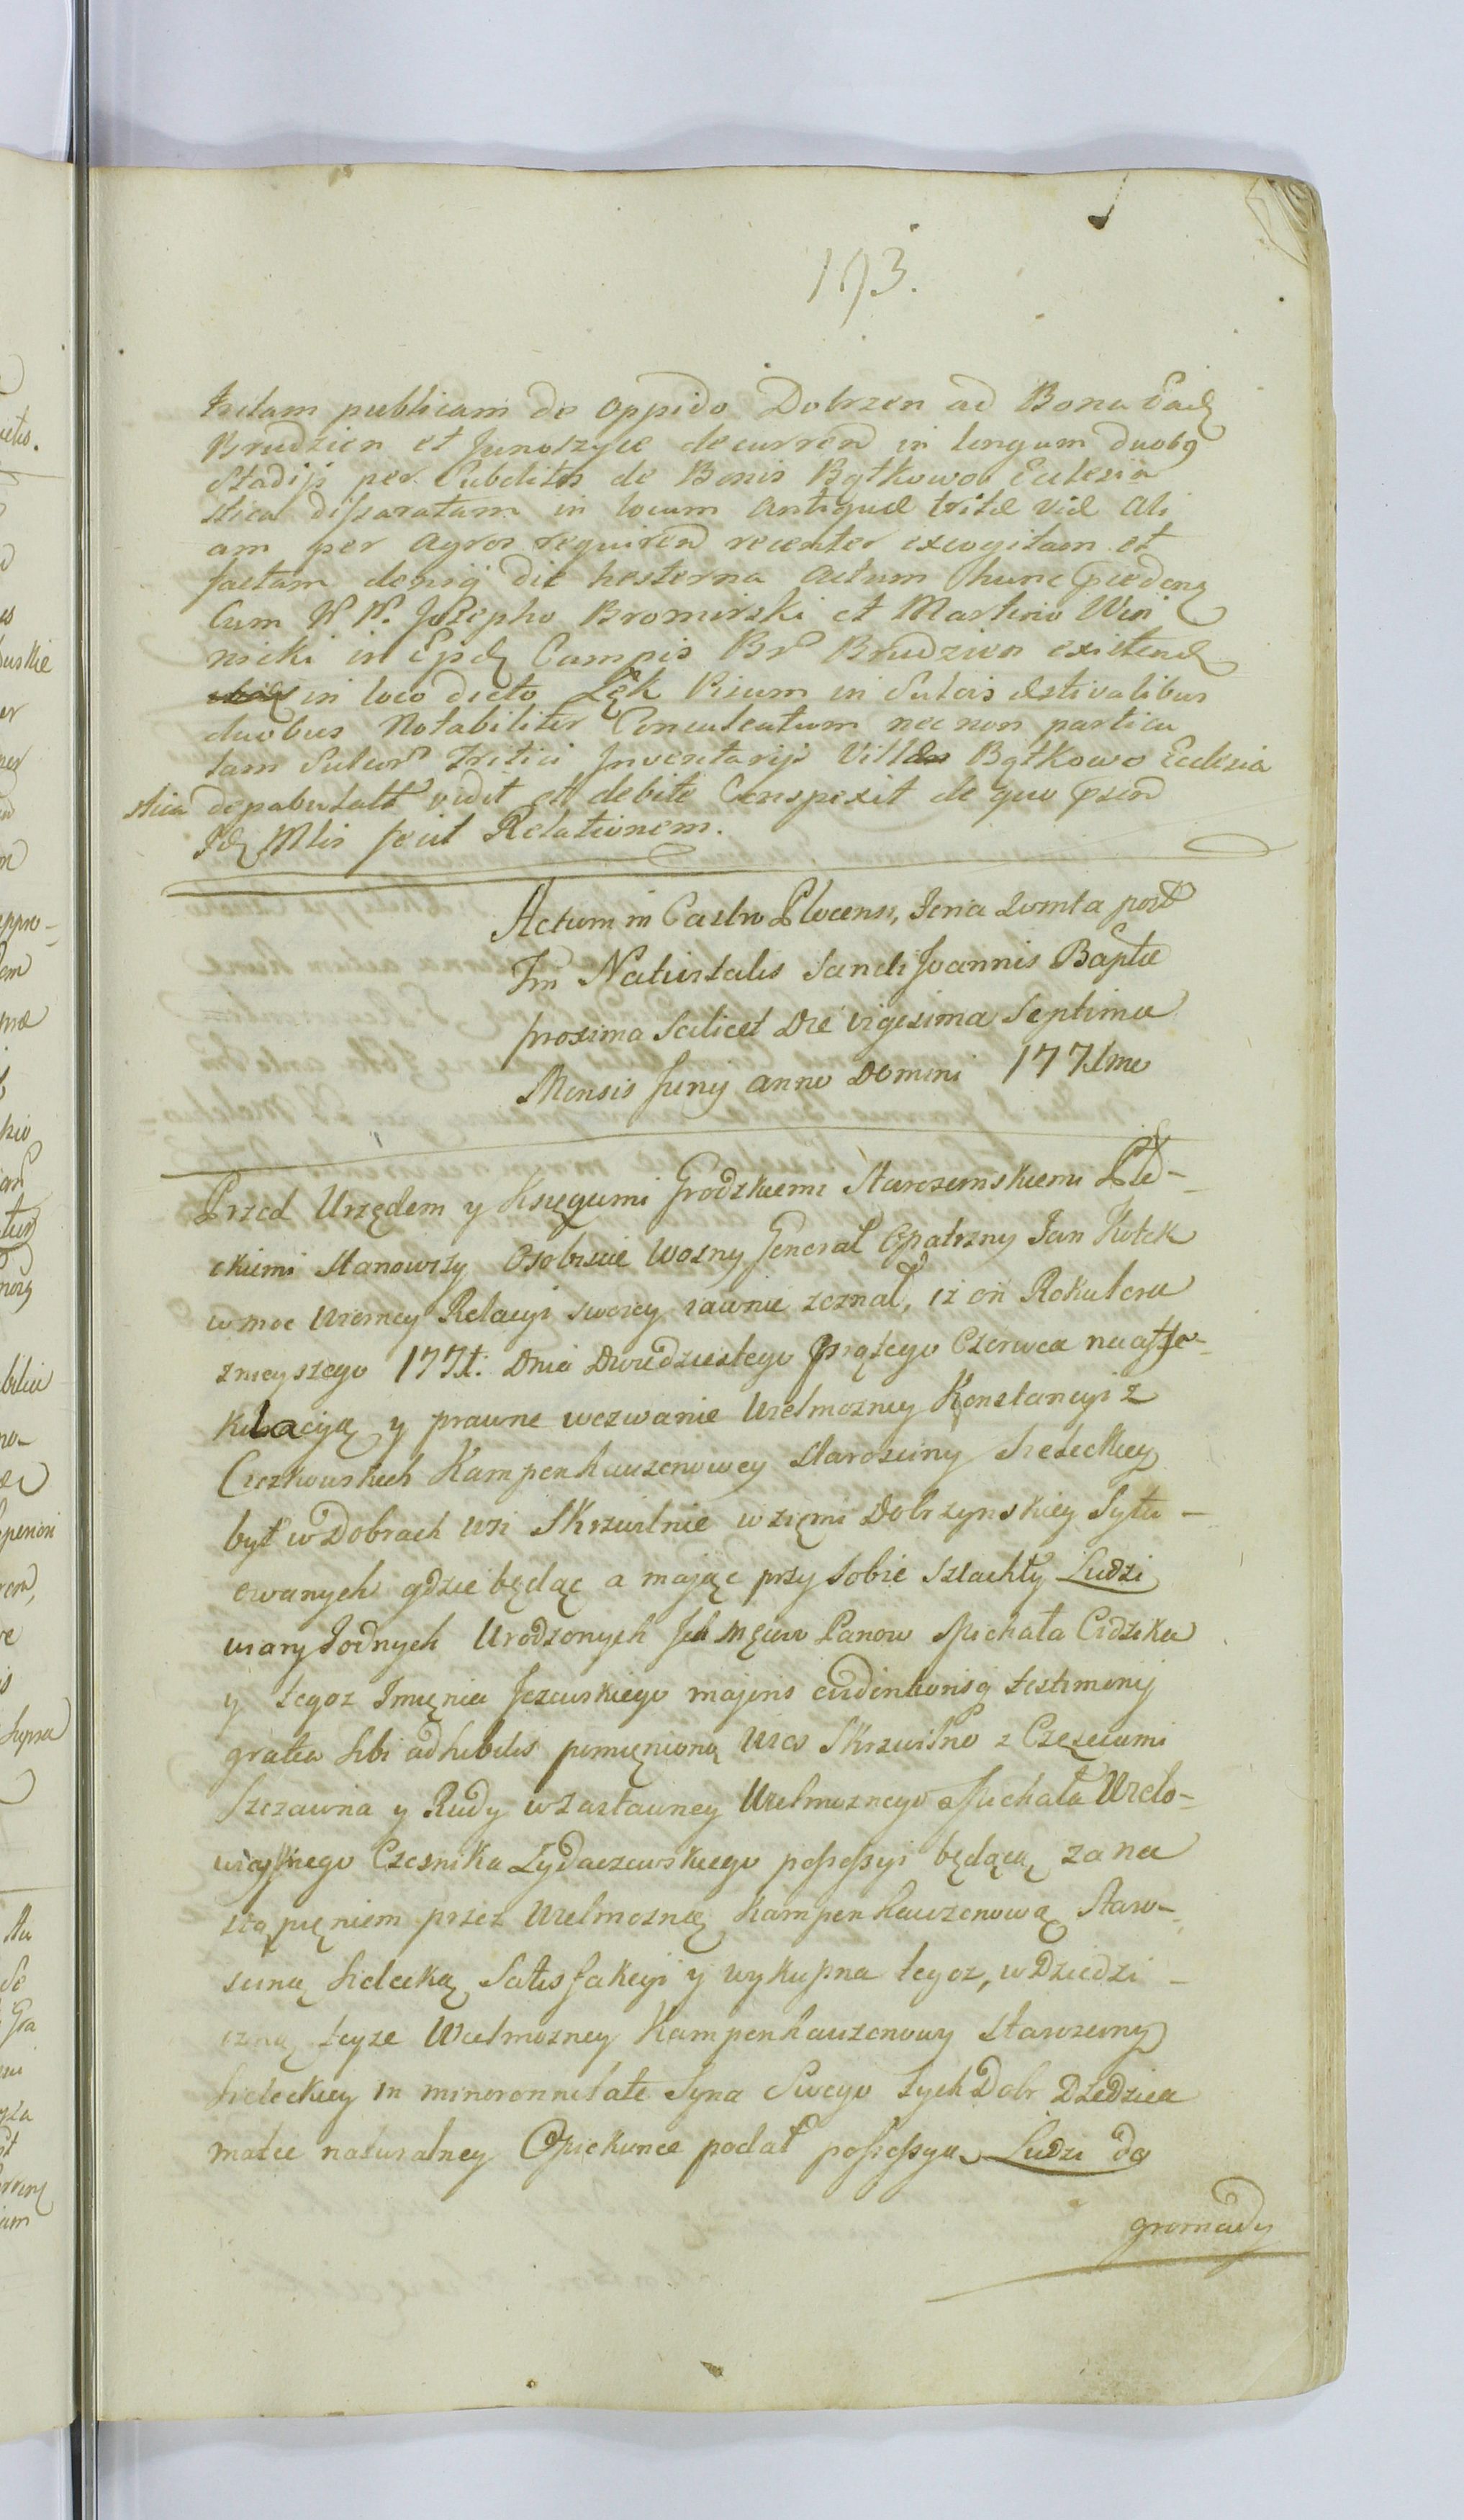 193.
tritam publicam de oppido Dobrzen ad Bona Eadz
Brudzien et Junoszyce decurren in longum duobq
Stadijs per Subditos de Bonis Bątkowo Ecclesia
stica disparatam in locum antiquæ tritæ viæ ali
am per agros requiren recenter excogitam et
factam deniq die hesterna actum hunc prædenz
Cum N N. Josepho Bromirski et Martino Win
nicki in Epdz Campis Br Brudzien existenz
in loco dicto Lęk Pisum in Sulcis æstivalibus
duobus Notabiliter Conculcatum nec non particu
lam Sulcor Tritici Inventarij Villæ Bątkowo Ecclesia
stica depabulatt vidit et debite Conspexit de quo præn
Idz Mlis fecit Relationem.
Actum in Castro Plocensi, Feria Quinta post
Fm Nativitatis Sancti Joannis Baptæ
proxima Scilicet Die vigesima Septima
Mensis Junij anno Domini 1771mo
Przed Urzędem y Księgami Grodzkiemi Starościnskiemi Pło-
ckiemi Stanowszy Osobiscie Wozny Generał Opatrzny Jan Kotek
w moc wierney Relacyi swoiey iawnie zeznał, iż on Roku teraz
znieyszego 1771. Dnia Dwudziestego piątego Czerwca na affe-
ktacyją y prawne wezwanie Wielmozney Konstancyi z
Cieszkowskich Kampenhauzenowey Starosciny Sieleckiey
był w Dobrach wsi Skrzwilnie w ziemi Dobrzynskiey Sytu-
owanych gdzie będąc a mając przy sobie Szlachty Ludzi
wiary Godnych Urodzonych Ich Męciow Panow Michała Cidzika
y tegoz Imięnia Jezewskiego majoris evidentionisq testimonij
gratia Sibi adhibitis pomięnioną Wies Skrzwilno z Częsciami
Szczawna y Rudy w zastawney Wielmoznego Michała Wielo-
wieyskiego Czesnika Zydaczewskiego possessyi będącą za na
stąpięniem przez Wielmozną Kampenhauzenową Staro-
scinę Sielecką Satisfakcyi y wykupna tegoz, w Dziedzi-
czną teyze Wielmozney Kampenhauzenowy Starosciny
Sieleckiey in minorennitate Syna Swego tych Dobr Dziedzica
matce naturalney Opiekunce podał possessyą Ludzi do
gromady